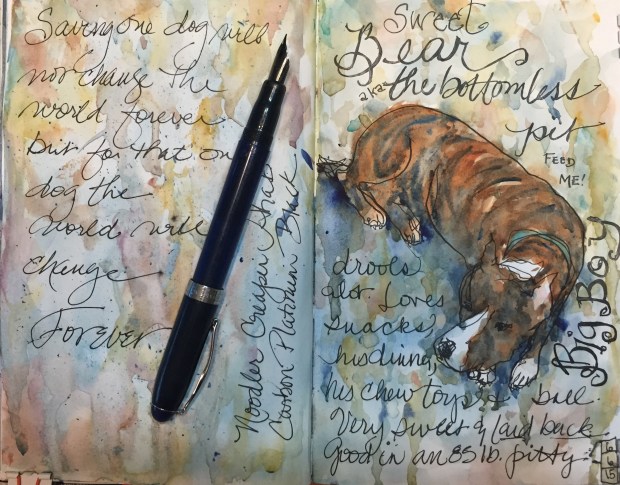 Saving one dog will
not change the
world forever
but for that on
dog the
world will
change
Forever
Noodler Creaper Ahab
Carbon Platinum Black
Sweet
Bear
aka the bottomless
pit
FEED
ME!
Big Boy
drools
alot. Loves
snacks,
his dining,
his chew toys & ball.
Very sweet & laid back
Good in an 85 lb. pitty